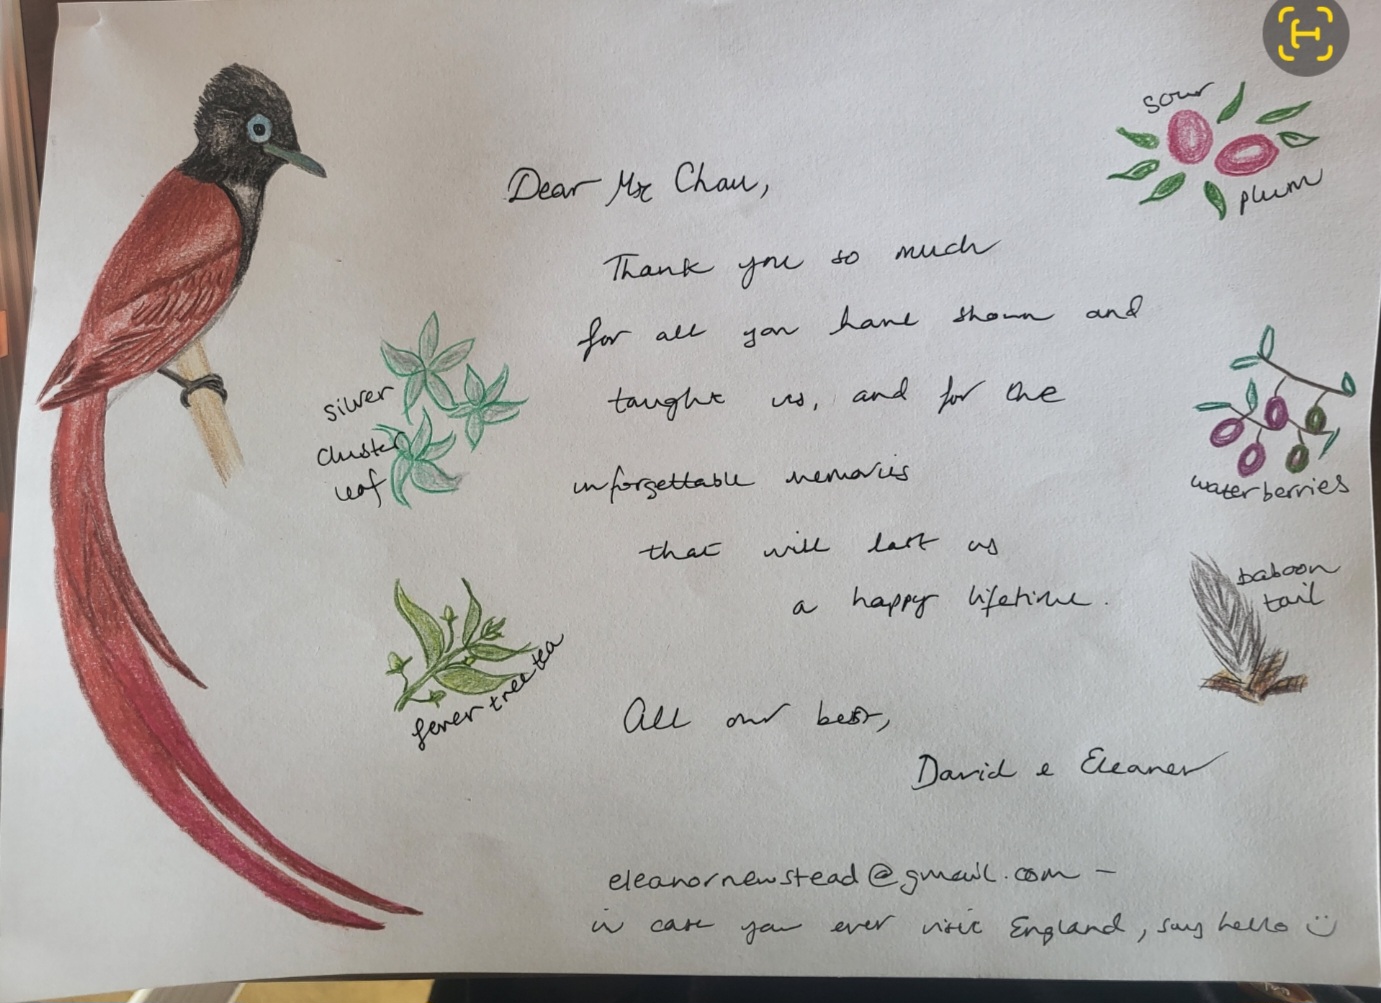 sour
plum
Dear Mr Chau,
Thank you so much
for all you have shown and
taught us, and for the
unforgettable memories
that will last us
a happy lifetime.
All our best,
David & Eleanor
eleanornewstead@gmail.com –
in case you ever visit England, say hello :)
silver
cluster
leaf
fever tree tea
waterberries
baboon
tail